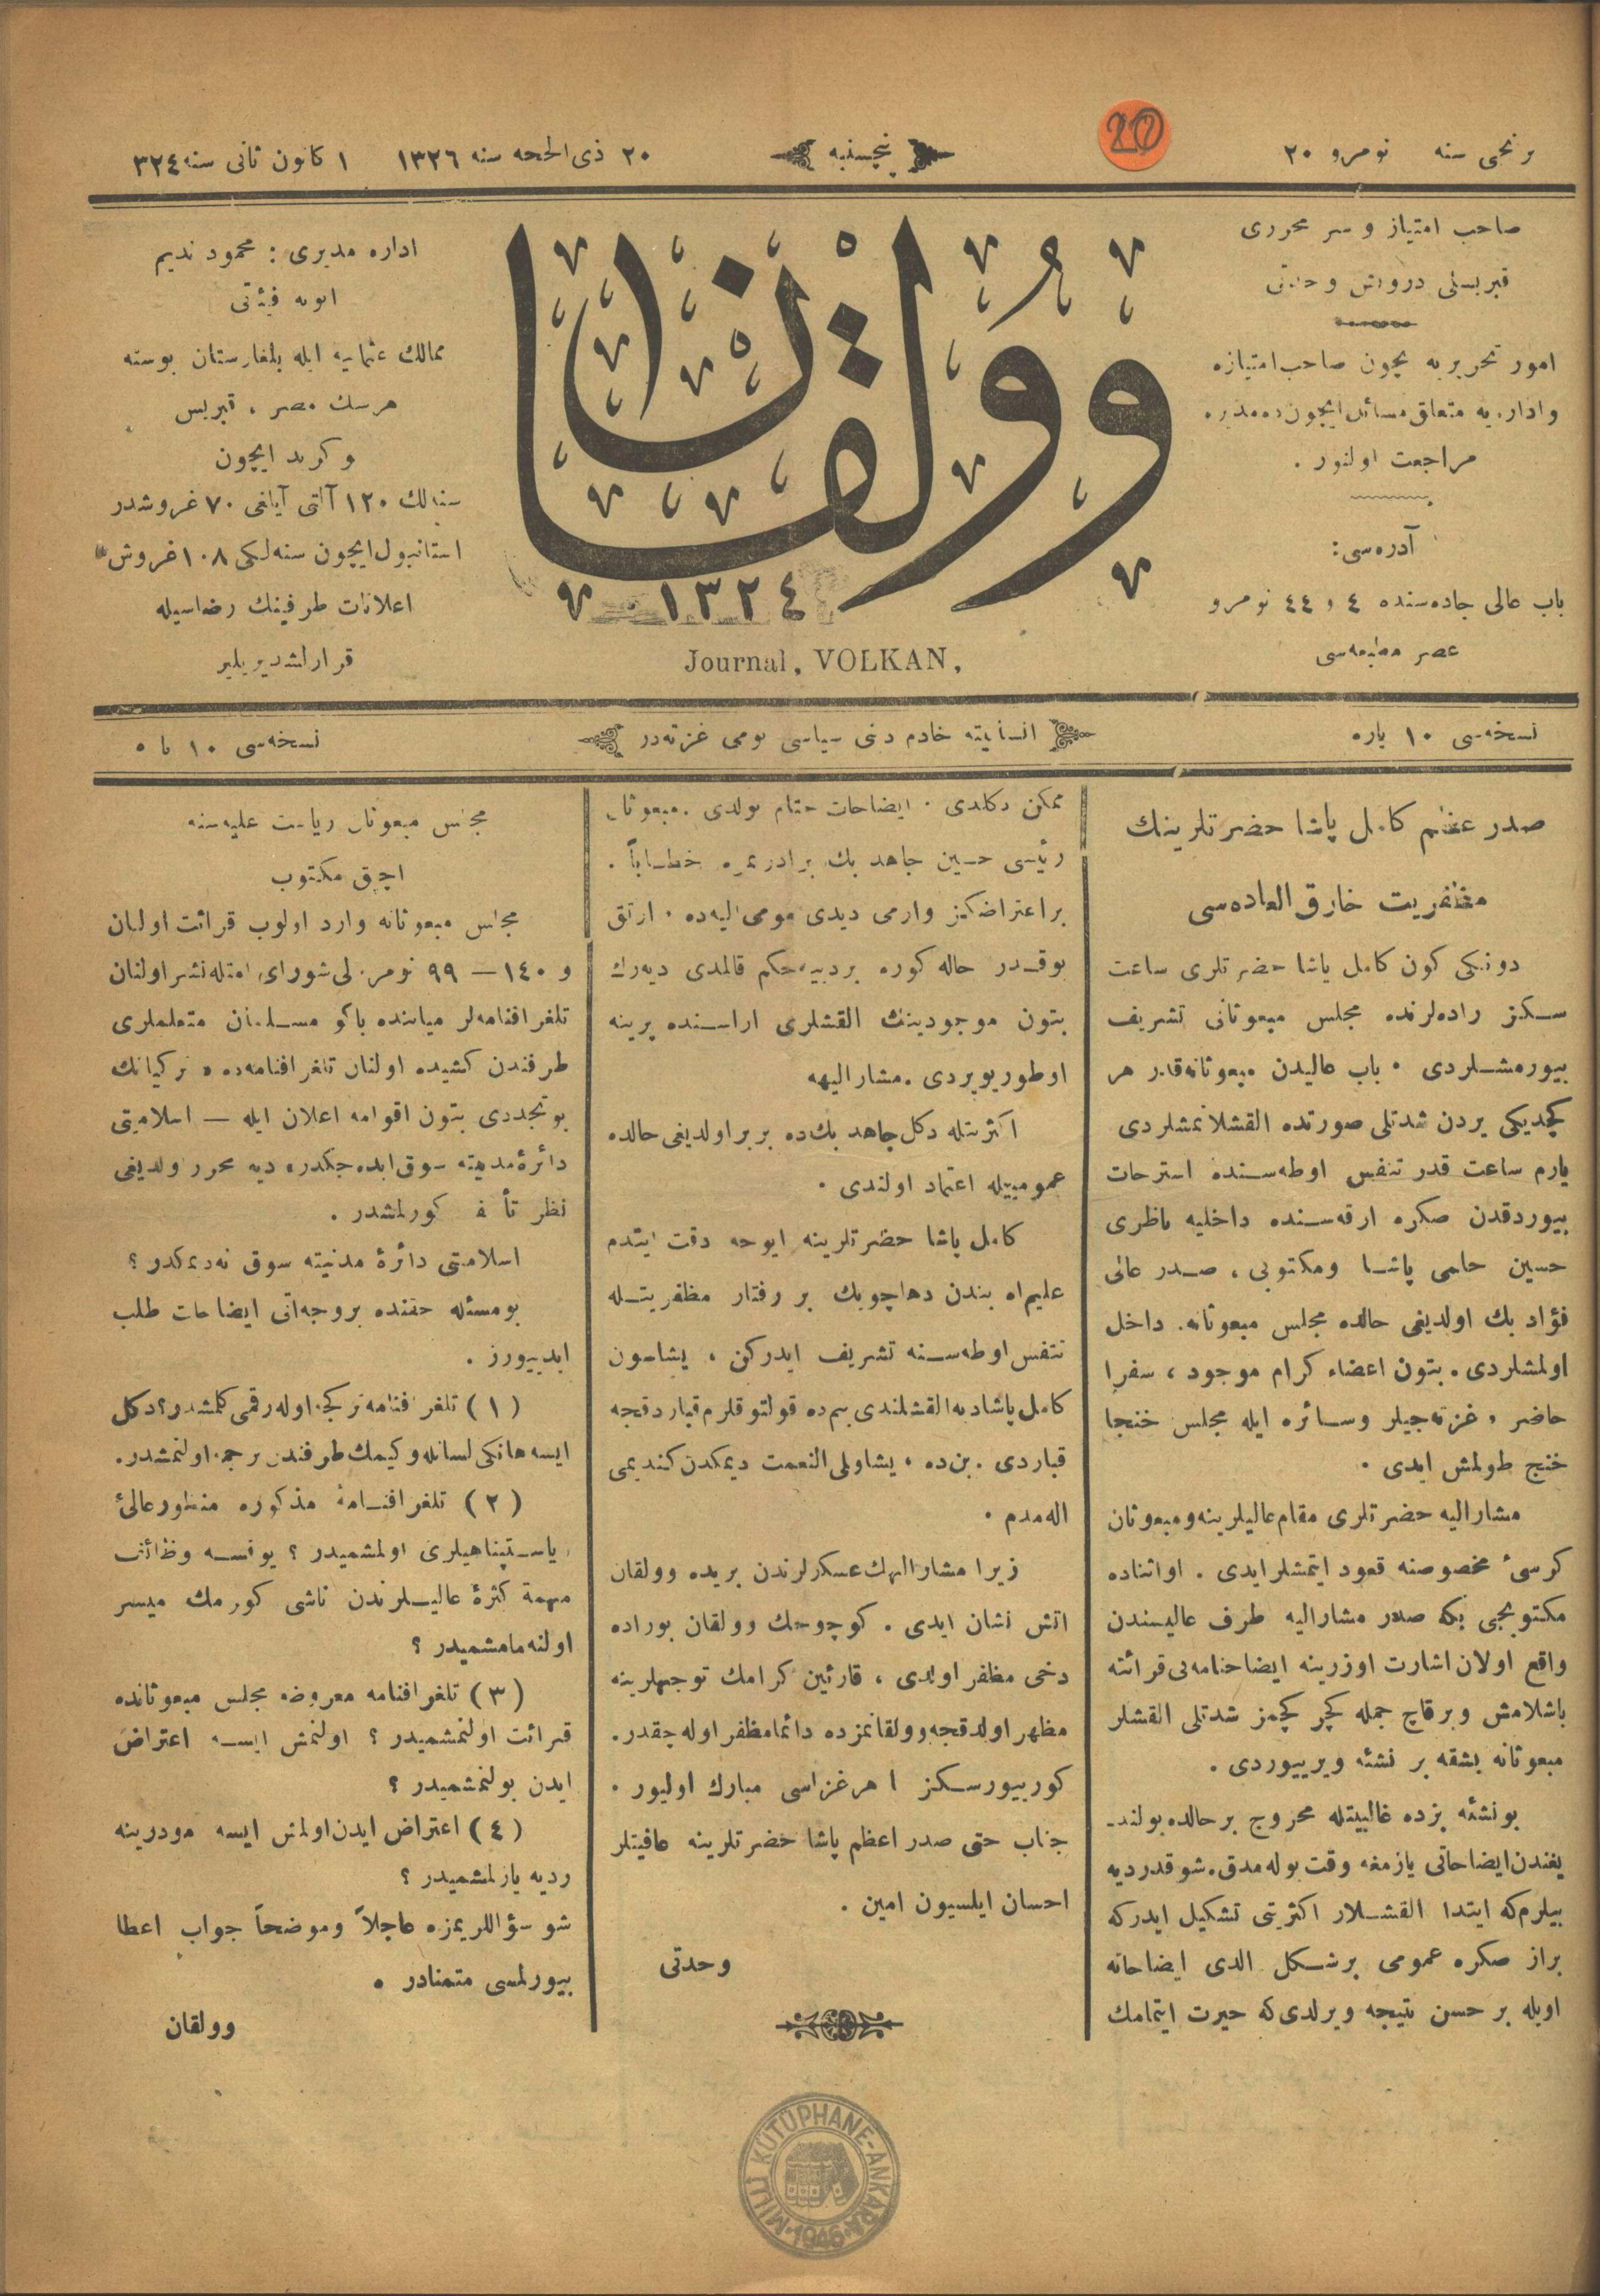 برنجی سنه نومرو ٢٠
20
پنجشنبه
٢٠ ذی الحجه سنه ١٣٢٦
١ كانون ثانی سنه ٣٢٤
صاحب امتیاز و سر محرری
قبریسلی درویش وحدتی
امور تحریریه ایچون صاحب امتیازه
واداریه متعلق مسائل ایچون ده مدیره
مراجعت اولنور .
آدره سی:
باب عالی جاده سنده ٤ و ٤٤ نومرو
عصر مطبعه سی
وولقان
١٣٢٤
Journal, VOLKAN,
اداره مدیری : محمود ندیم
ابونه فیئتی
ممالك عثمانیه ایله بلغارستان بوسنه
هرسك مصر ، قبریس
و كرید ایچون
سنه لك ١٢٠ آلتی آیلغی ٧٠ غروشدر
استانبول ایچون سنه لكی ١٠٨ غروش
اعلانات طرفینك رضاسیله
قرارلشدیریلیر
نسخه سی ١٠ پاره
انسانیته خادم دینی سیاسی یومی غزته در
نسخه سی ١٠ پاره
صدر عظم كامل پاشا حضرتلرینك
مظفریت خارق العاده سی
دونكی كون كامل پاشا حضرتلری ساعت
سكز راده لرنده مجلس مبعوثانی تشریف
بیورمشلردی . باب عالیدن مبعوثانه قدر هر
كچدیكی یردن شدتلی صورتده القشلانمشلردی
یارم ساعت قدر تنفس اوطه سنده استرحات
بیوردقدن صكره ارقه سنده داخلیه ناظری
حسین حلمی پاشا ومكتوبی ، صدر عالی
فؤاد بك اولدیغی حالده مجلس مبعوثانه داخل
اولمشلردی . بتون اعضاء كرام موجود ، سفرا
حاضر ، غزته جیلر وسائره ایله مجلس خنجا
خنج طولمش ایدی .
مشارالیه حضرتلری مقام عالیلرینه ومبعوثان
كرسئ مخصوصنه قعود ایتمشلر ایدی . اواثناده
مكتوبجی بكه صدر مشارالیه طرف عالیسندن
واقع اولان اشارت اوزرینه ایضاحنامه یی قرائته
باشلامش وبرقاچ جمله كچر كچمز شدتلی القشلر
مبعوثانه بشقه بر نشئه ویرییوردی .
بونشئه بزده غالبیتله محروج بر حالده بولند-
یغندن ایضاحاتی یازمغه وقت بوله مدق . شو قدر دیه
بیلرم كه ابتدا القشلار اكثریتی تشكیل ایدركه
براز صكره عمومی برشكل الدی ایضاحاته
اویله بر حسن نتیجه ویرلدی كه حیرت ایتمامك
ممكن دكلدی . ایضاحات ختام بولدی . مبعوثان
رئیسی حسین جاهد بك برادریمزه خطاباً .
براعتراضكز وارمی دیدی مومی الیه ده ، ارتق
بوقدر حاله كوره بردییه جكم قالمدی دیه رك
بتون موجودینك القشلری اراسنده یرینه
اوطوریویردی . مشارالیهه
اكثریتله دكل جاهد بك ده برابر اولدیغی حالده
عمومیتیله اعتماد اولندی .
كامل پاشا حضرتلرینه ایوجه دقت ایتدم
علیم الله بندن دها چوبك بر رفتار مظفریتله
تنفس اوطه سنه تشریف ایدركن ، یشاسون
كامل پاشا دیه القشلندی بم ده قولتوقلرم قباردقجه
قباردی . بن ده ، یشا ولی النعمت دیمكدن كندیمی
اله مدم .
زیرا مشارالیهك عسكرلرندن بریده وولقان
اتش نشان ایدی . كوچوجك وولقان بوراده
دخی مظفر اولدی ، قارئین كرامك توجهلرینه
مظهر اولدقجه وولقانمزده دائما مظفر اوله جقدر .
كورییورسكز ! هر غزاسی مبارك اولیور .
جناب حق صدر اعظم پاشا حضرتلرینه عافیتلر
احسان ایلسیون امین .
وحدتی
مجلس مبعوثان ریاست علیه سنه
اچیق مكتوب
مجلس مبعوثانه وارد اولوب قرائت اولنان
و ١٤٠ — ٩٩ نومرولی شورای امتله نشر اولنان
تلغرافنامه لر میاننده باكو مسلمان متعلملری
طرفندن كشیده اولنان تلغرافنامه ده « تركیانك
بو تجددی بتون اقوامه اعلان ایله — اسلامیتی
دائرۀ مدنیته سوق ایده جكدر » دیه محرر اولدیغی
نظر تأسفله كورلمشدر .
اسلامیتی دائرۀ مدنیته سوق نه دیمكدر ؟
بو مسئله حقنده بروجه آتی ایضاحات طلب
ایدییورز .
( ١ ) تلغرافنامه تركجه اوله رقمی كلمشدر ؟ دكل
ایسه هانكی لسانله و كیمك طرفندن ترجمه اولنمشدر .
( ٢ ) تلغرافنامۀ مذكوره منظور عالئ
ریاستپناهیلری اولمشمیدر ؟ یوقسه وظائف
مهمۀ كثرۀ عالیلرندن ناشی كورمك میسر
اولنه مامشمیدر ؟
( ٣ ) تلغرافنامه معروضه مجلس مبعوثانده
قرائت اولنمشمیدر ؟ اولنمش ایسه اعتراض
ایدن بولنمشمیدر ؟
( ٤ ) اعتراض ایدن اولمش ایسه مودرینه
ردیه یازلمشمیدر ؟
شو سؤاللریمزه عاجلاً وموضحاً جواب اعطا
بیورلمسی متمنادر .
وولقان
MİLLİ KÜTÜPHANE-ANKARA
1946